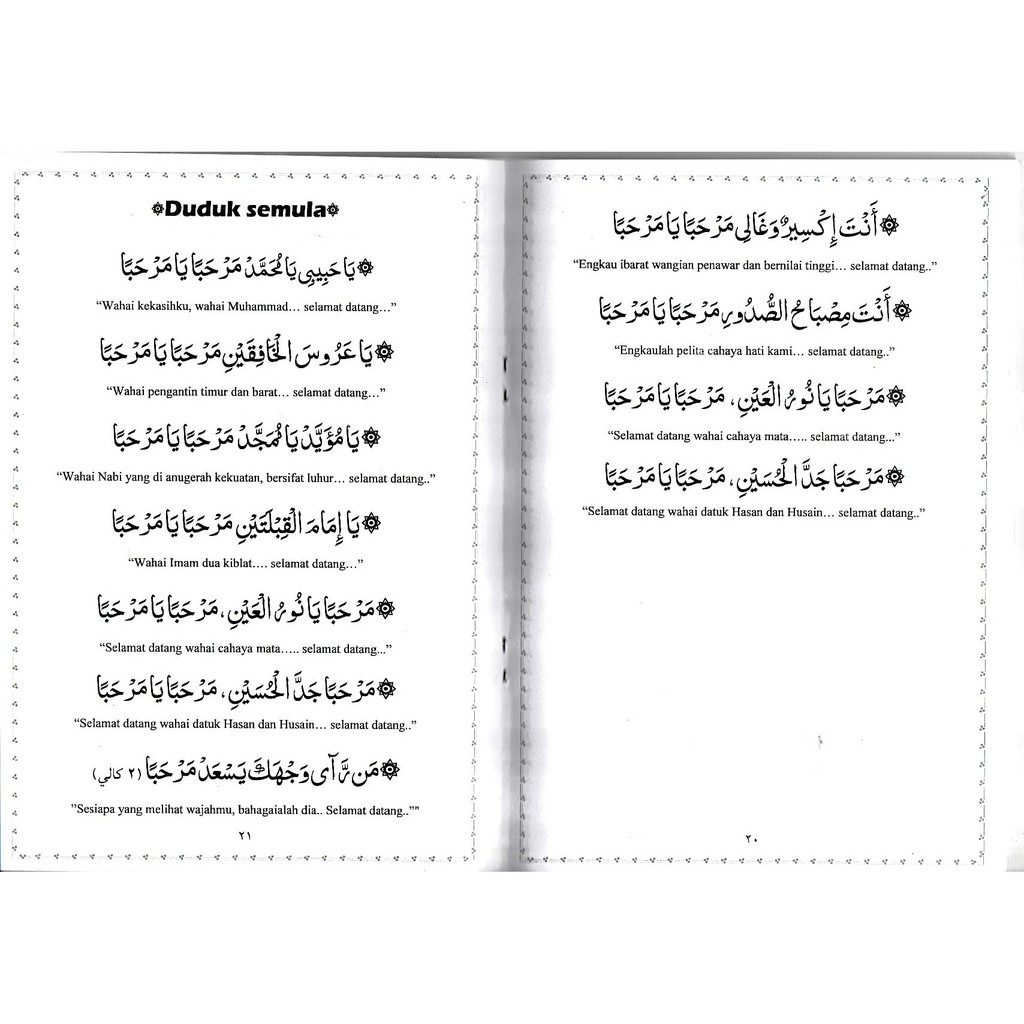 أَنْتَ إِكْسِيرٌ وَغَالِى مَرْحَبًا يَا مَرْحَبًا
“Engkau ibarat wangian penawar dan bernilai tinggi… selamat datang..”
أَنْتَ مِصْبَاحُ الصُّدُورِ مَرْحَبًا يَا مَرْحَبًا
“Engkaulah pelita cahaya hati kami… selamat datang..”
مَرْحَبًا يَا نُورُ الْعَيْنِ، مَرْحَبًا يَا مَرْحَبًا
“Selamat datang wahai cahaya mata….. selamat datang...”
مَرْحَبًا جَدَّ الْحُسَيْنِ، مَرْحَبًا يَا مَرْحَبًا
“Selamat datang wahai datuk Hasan dan Husain… selamat datang..”
٢٠
Duduk semula
يَا حَبِيبِى يَا مُحَمَّدْ مَرْحَبًا يَا مَرْحَبًا
“Wahai kekasihku, wahai Muhammad… selamat datang…”
يَا عَرُوسَ الْخَافِقَيْنِ مَرْحَبًا يَا مَرْحَبًا
“Wahai pengantin timur dan barat… selamat datang…”
يَا مُؤَيَّدْ يَا مُمَجَّدْ مَرْحَبًا يَا مَرْحَبًا
“Wahai Nabi yang di anugerah kekuatan, bersifat luhur… selamat datang..”
يَا إِمَامَ الْقِبْلَتَيْنِ مَرْحَبًا يَا مَرْحَبًا
“Wahai Imam dua kiblat…. selamat datang…”
مَرْحَبًا يَا نُورُ الْعَيْنِ، مَرْحَبًا يَا مَرْحَبًا
“Selamat datang wahai cahaya mata….. selamat datang...”
مَرْحَبًا جَدَّ الْحُسَيْنِ، مَرْحَبًا يَا مَرْحَبًا
“Selamat datang wahai datuk Hasan dan Husain… selamat datang..”
مَن رَّآى وَجْهَكَ يَسْعَدْ مَرْحَبًا (٢ كالي)
”Sesiapa yang melihat wajahmu, bahagaialah dia.. Selamat datang..””
٢١